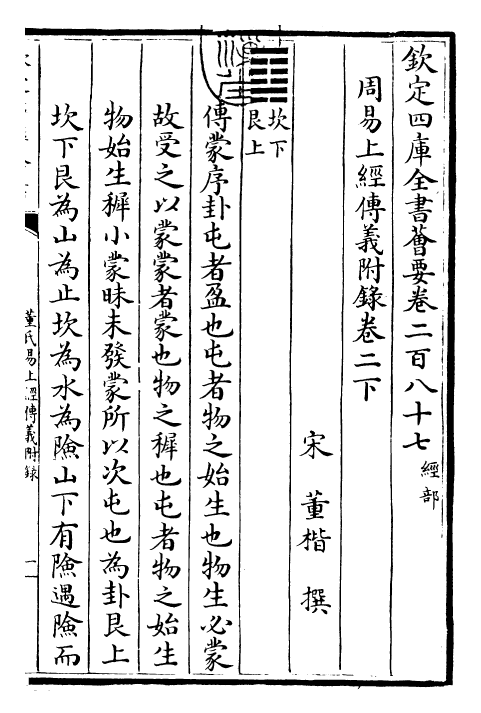 欽定四庫全書薈要卷二百八十七 經部
周易上經傳義附錄卷二下
宋 董楷 撰
坎下
艮上
傳蒙序卦屯者盈也屯者物之始生也物生必蒙
故受之以蒙蒙者蒙也物之穉也屯者物之始生
物始生穉小蒙昧未發蒙所以次屯也為卦艮上
坎下艮為山為止坎為水為險山下有險遇險而
董氏易上經傳義附錄
一